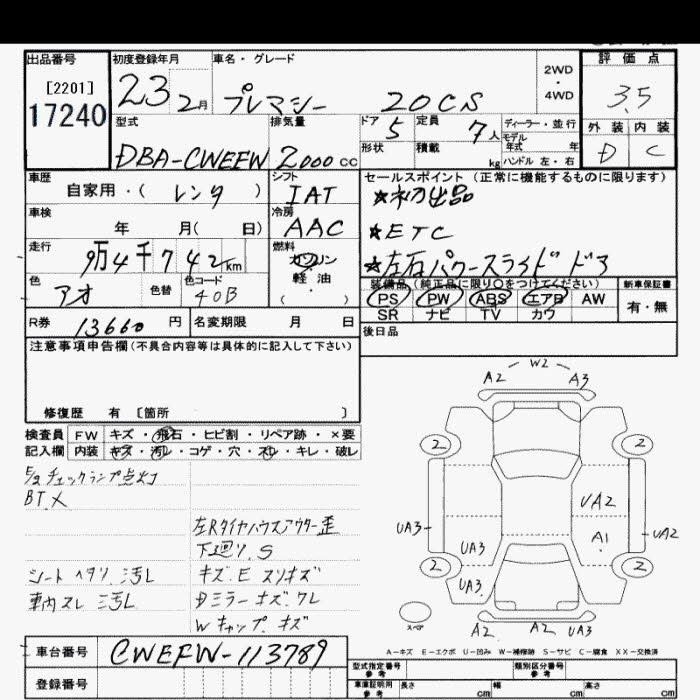 出品番号 初度登録年月 車名・グレード 評価点
[2201] 2WD
17240 23 2月 プレマシー 20CS ・ 4WD 3.5
型式 排気量 ドア 5 定員 7人 ディーラー・並行 外装 内装
モデル年式 年
DBA-CWEFW 2000cc 形状 積載 kg ハンドル 左・右 D C
車歴 シフト セールスポイント(正常に機能するものに限ります)
自家用・( レンタ ) IAT ★初出品
車検 冷房
年 月( 日) AAC ★ETC
走行 燃料
9万4千742km ガソリン ★左右パワースライドドア
色 色替 色コード 軽油
アオ 40B ( ・ ) 装備品(純正品に限り○をつけてください) 新車保証書
PS PW ABS エアB AW 有・無
SR ナビ TV カワ
R券 13660円 名変期限 月 日 後日品
注意事項申告欄(不具合内容等は具体的に記入して下さい)
修復歴 有 〔箇所 〕
検査員 FW キズ・飛石・ヒビ割・リペア跡・×要
記入欄 内装 キズ・汚レ・コゲ・穴・スレ・キレ・破レ
E/g チェックランプ点灯
BT.X
左Rタイヤハウスアウター歪
下廻り.S
シートヘタリ.汚レ キズ.E スリキズ
車内スレ 汚レ Dミラーキズ.ワレ
Wキャップ.キズ
W2
A2 A3
2 2
UA2
UA3 A1 UA2
UA3
2 2
UA3
スペア A2 A2 UA3
A-キズ E-エクボ U-凹み W-補修跡 S-サビ C-腐食 XX-交換済
車台番号 CWEFW-113789 型式指定番号 参考 類別区分番号 参考
登録番号 車庫証明用 参考 長さ cm 幅 cm 高さ cm